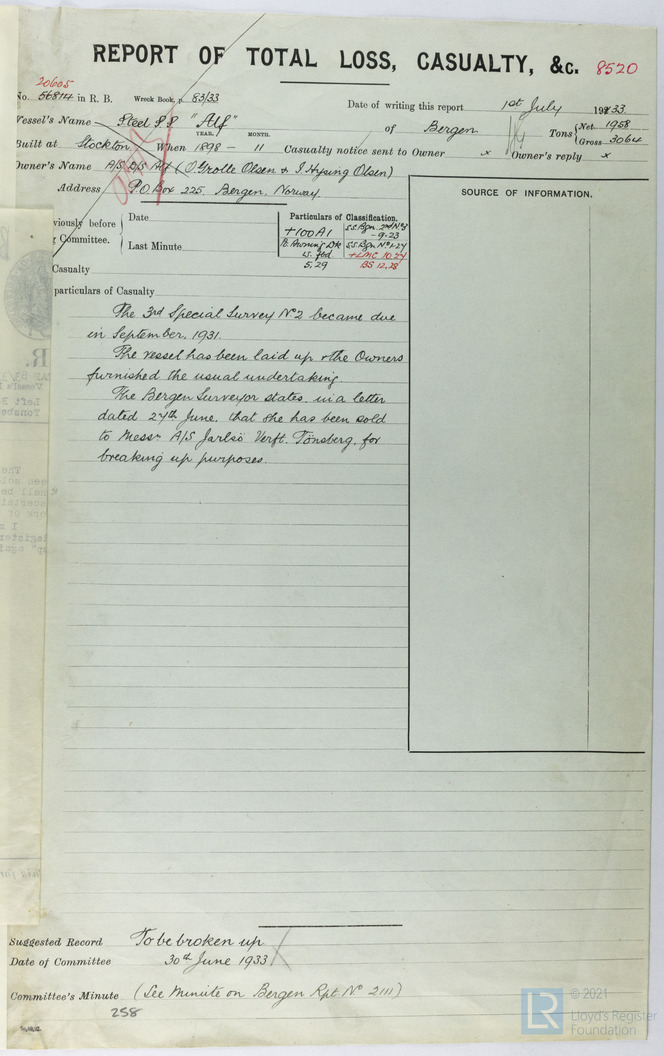 REPORT OF TOTAL LOSS, CASUALTY, &c. 8520
20605
No. 56814 in R. B. Wreck Book, p. 83/33
Date of writing this report 1st July 1933
Vessel's Name Steel S.S "Alf" of Bergen Tons Net 1958 Gross 3064
YEAR. MONTH.
Built at Stockton When 1898 - 11 Casualty notice sent to Owner x Owner's reply x
Owner's Name A/S D/S Alf (O. Grolle Olsen & I. Hysing Olsen)
Address P.O. Box 225, Bergen, Norway.
SOURCE OF INFORMATION.
viously before Committee.
Date
Last Minute
Particulars of Classification.
+100A1
S.S. Bgn. 2nd No 3 - 9.23
S.S. Bgn. No 1-27
+LMC 10.27
5,29 BS 12.28
Casualty
particulars of Casualty
The 3rd Special Survey No 2 became due
in September, 1931.
The vessel has been laid up & the Owners
furnished the usual undertaking.
The Bergen Surveyor states, in a letter
dated 27th June, that she has been sold
to Messrs A/S Jarlsö Verft, Tönsberg, for
breaking up purposes.
Suggested Record To be broken up
Date of Committee 30th June 1933
Committee's Minute (See Minute on Bergen Rpt. No 2111)
258
© 2021
Lloyd's Register
Foundation
LR